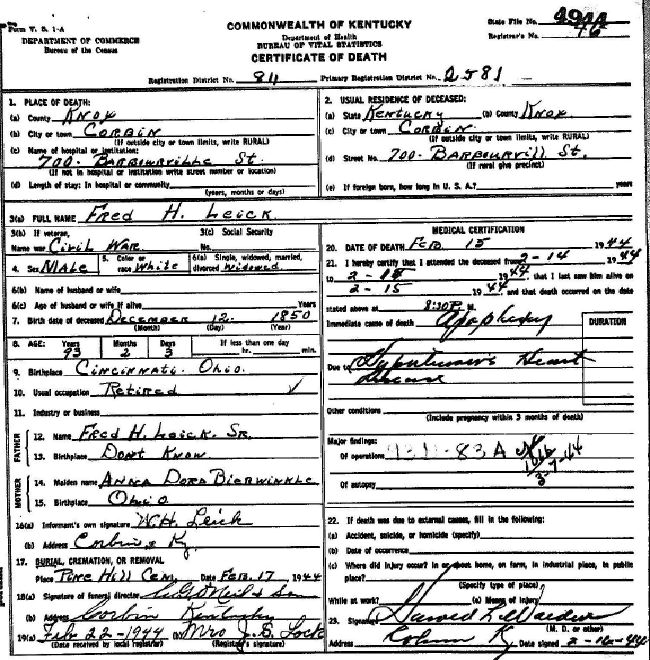 Form V. S. 1-A
COMMONWEALTH OF KENTUCKY
State File No. 4944
DEPARTMENT OF COMMERCE
Bureau of the Census
Department of Health
BUREAU OF VITAL STATISTICS
Registrar's No. 16
CERTIFICATE OF DEATH
Registration District No. 811 Primary Registration District No. 2581
1. PLACE OF DEATH:
(a) County Knox
(b) City or town CORBIN
(If outside city or town limits, write RURAL)
(c) Name of hospital or institution:
700. BARBOURVILLE St.
(If not in hospital or institution write street number or location)
(d) Length of stay: In hospital or community
(years, months or days)
2. USUAL RESIDENCE OF DECEASED:
(a) State Kentucky (b) County Knox
(c) City or town CORBIN
(If outside city or town limits, write RURAL)
(d) Street No. 700. BARBOURVILL St.
(If rural give precinct)
(e) If foreign born, how long in U. S. A.? years
3(a) FULL NAME Fred H. Leick
3(b) If veteran, 3(c) Social Security
Name war Civil War No.
4. Sex Male 5. Color or race White 6(a) Single, widowed, married, divorced Widowed
6(b) Name of husband or wife
6(c) Age of husband or wife if alive Years
7. Birth date of deceased December 12- 1850
(Month) (Day) (Year)
8. AGE: Years Months Days If less than one day
93 2 3 hr. min.
9. Birthplace Cincinnati. Ohio.
10. Usual occupation Retired
11. Industry or business
FATHER
12. Name Fred H. Leick. Sr.
13. Birthplace Dont Know
MOTHER
14. Maiden name Anna Dora Bierwinkle
15. Birthplace Ohio
16(a) Informant's own signature W.H. Leick
(b) Address Corbin, Ky.
17. BURIAL, CREMATION, OR REMOVAL
Place Pine Hill Cem. Date Feb. 17 1944
18(a) Signature of funeral director
(b) Address Corbin Kentucky
19(a) Feb 22-1944 (b) Mrs J. S. Lock
(Date received by local registrar) (Registrar's signature)
MEDICAL CERTIFICATION
20. DATE OF DEATH Feb. 15 1944
21. I hereby certify that I attended the deceased from 2-14 1944
to 2-15 1944, that I last saw him alive on
2-15 1944, and that death occurred on the date
stated above at 8:30 P. m.
Immediate cause of death Apoplexy
DURATION
Due to Hypertensive Heart
Disease
Other conditions
(Include pregnancy within 3 months of death)
Major findings:
Of operations 93D-83A
3-7-44
Of autopsy
22. If death was due to external causes, fill in the following:
(a) Accident, suicide, or homicide (specify)
(b) Date of occurrence
(c) Where did injury occur? In or about home, on farm, in industrial place, in public
place?
(Specify type of place)
While at work? (e) Means of injury
23. Signature
(M. D. or other)
Address Ky Date signed 2-16-44